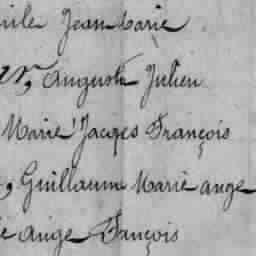 Jean Marie
Auguste Julien
Marie Jacques François
, Guillaume Marie ange
ange François